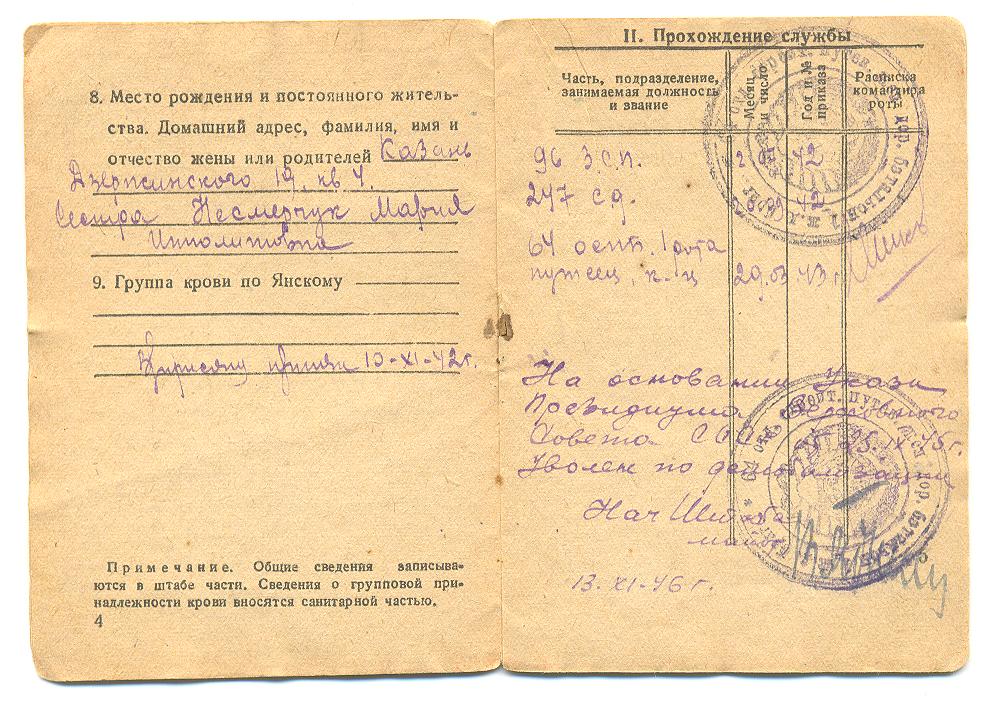 8. Место рождения и постоянного житель-
ства. Домашний адрес, фамилия, имя и
отчество жены или родителей Казань
Дзержинского 19. кв 4.
Сестра Несмерчук Мария
Ипполитовна
9. Группа крови по Янскому
Присягу принял 10-XI-42г.
Примечание. Общие сведения записыва-
ются в штабе части. Сведения о групповой при-
надлежности крови вносятся санитарной частью.
4
II. Прохождение службы
Часть, подразделение, занимаемая должность и звание
Месяц и число
Год и № приказа
Расписка командира роты
96 З.С.П. 42
247 сд. 42
64 осптб. 1 рота
путеец, к-ц 29.03 43 г.
На основании Указа
Президиума Верховного
Совета СССР 25.IX 45г.
Уволен по демобилизации
Нач Штаба
13.XI-46 г.